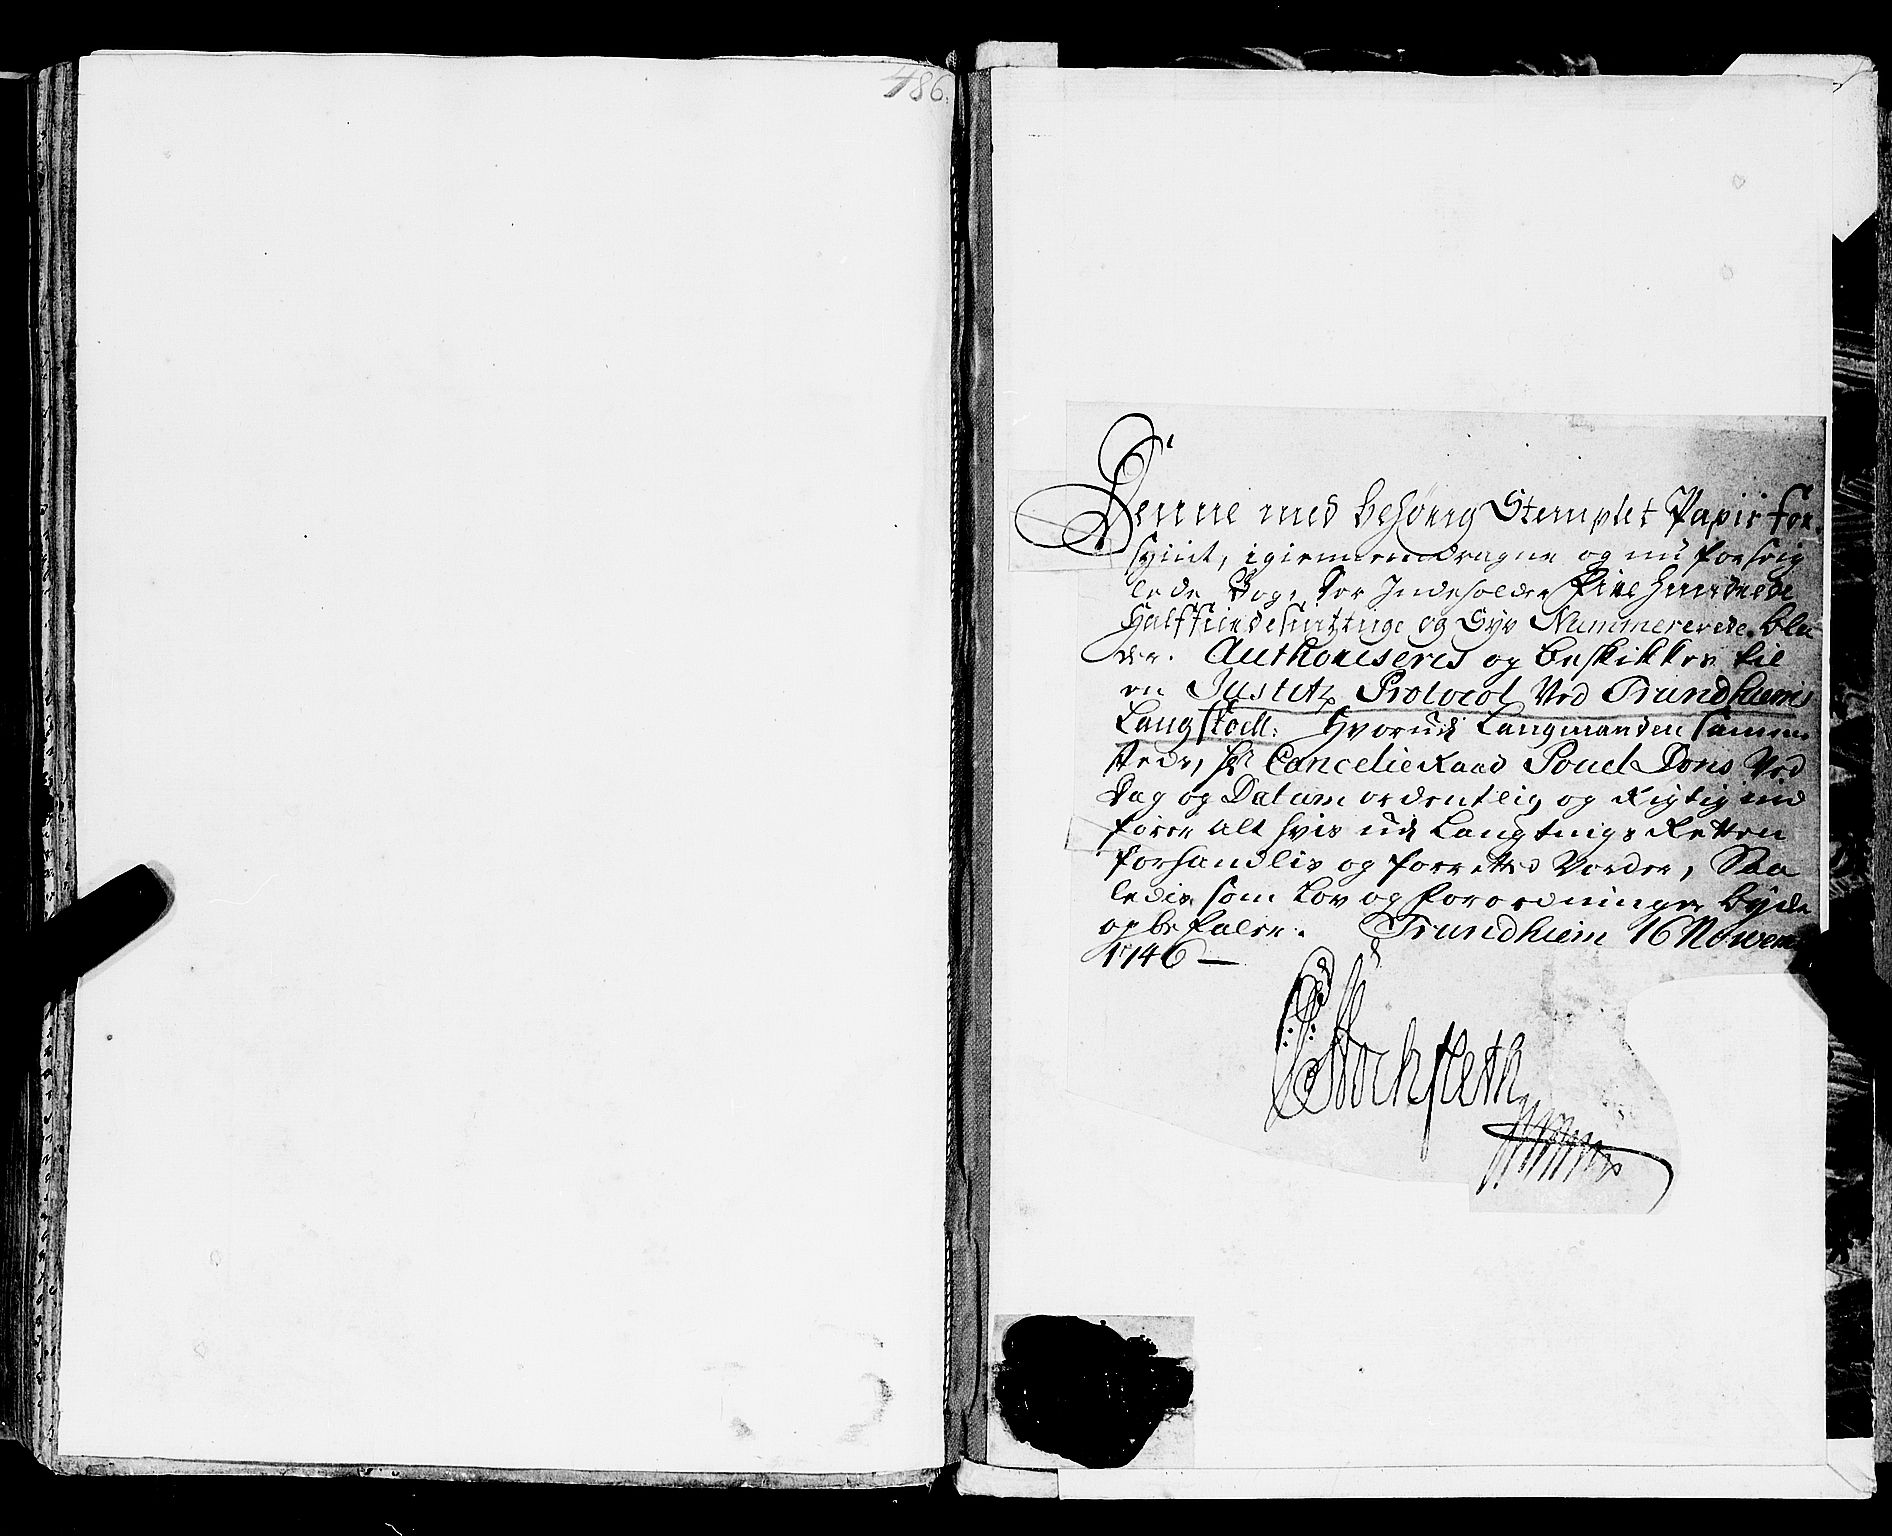 486.
Denne med behørig Stemplet Papir for-
synt, igiennemdragne og nu forseig
lede Bog, der Indeholder Fire hundrede
Halffierdesintztuge og Syv Nummererede bla
der. Authoriseres og beskikkes til
en Justitz Protocol ved Trundhiems
Laugstoell: hvorudj Laugmanden samme
stedz, Hr Cancelie Raad Povel Dons Ved
Dag og Datum ordentlig og Rigtig ind
fører alt hvis udj Laugtings Retten
forhandlis og forretted Vorder, Saa
ledis som Lov og Forordninger byde
og befaler. Trundhiem 16 Novem
1746 —
Stockfleth